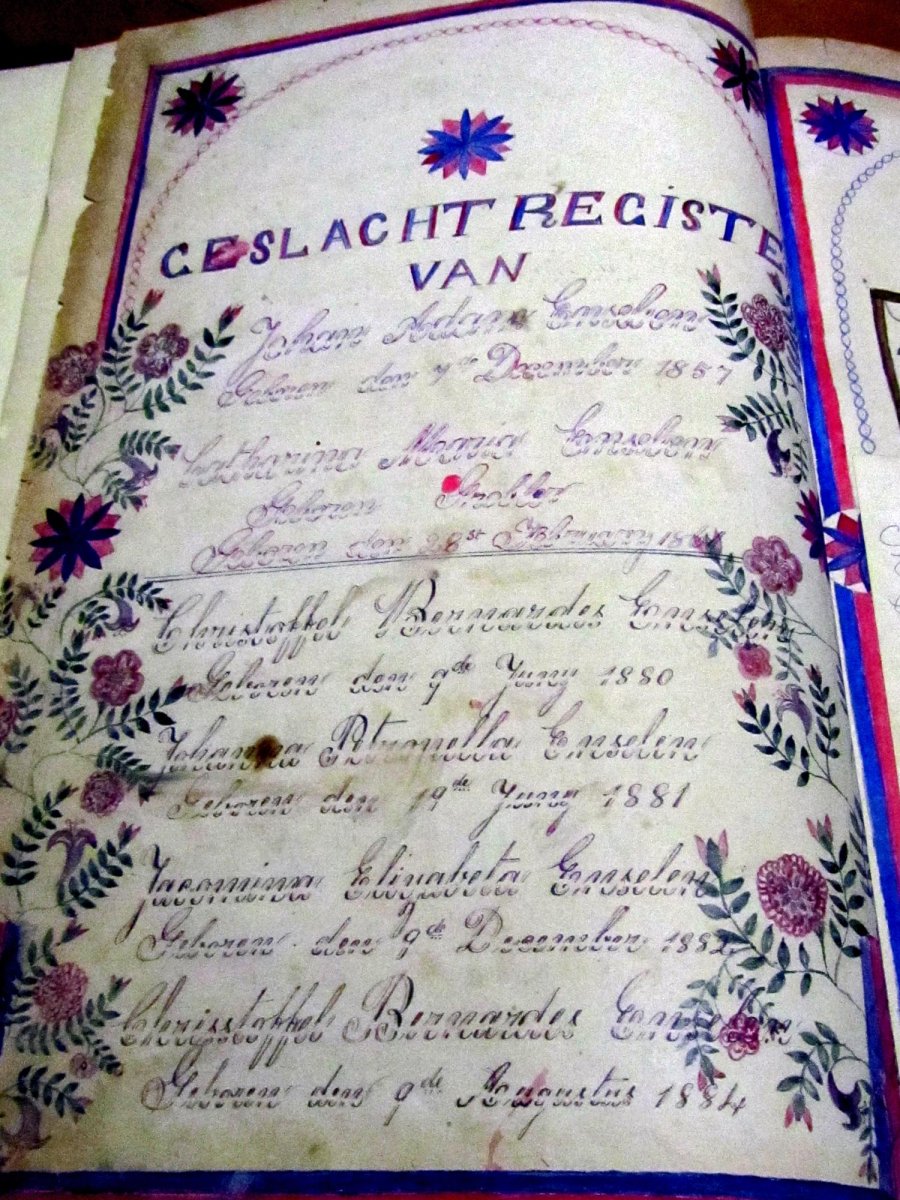 GESLACHT REGISTE
VAN
Johan Adam Enselen
Geboren den 7de December 1857
Catharina Maria Enselen
Geboren
Geboren den 28st February
Christoffel Bernardes Enselen
Geboren den 9de Juny 1880
Johanna Petronella Enselen
Geboren den 19de Juny 1881
Jacomina Elizabeta Enselen
Geboren den 9de December 1882
Chrisstoffel Bernardes Enselen
Geboren den 9de Augustus 1884